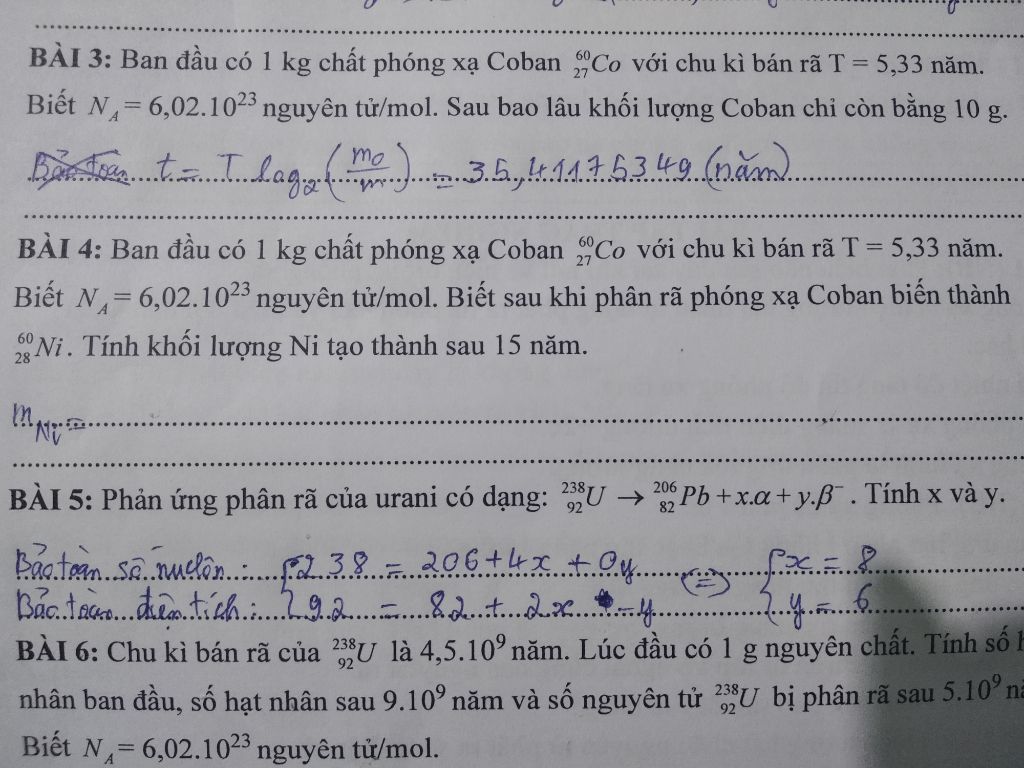 BÀI 3: Ban đầu có 1 kg chất phóng xạ Coban ⁶⁰₂₇Co với chu kì bán rã T = 5,33 năm.
Biết N_A = 6,02.10²³ nguyên tử/mol. Sau bao lâu khối lượng Coban chỉ còn bằng 10 g.
Bảo toàn t = T log₂(m₀/m) = 35,41175349 (năm)
BÀI 4: Ban đầu có 1 kg chất phóng xạ Coban ⁶⁰₂₇Co với chu kì bán rã T = 5,33 năm.
Biết N_A = 6,02.10²³ nguyên tử/mol. Biết sau khi phân rã phóng xạ Coban biến thành
⁶⁰₂₈Ni. Tính khối lượng Ni tạo thành sau 15 năm.
m_Ni =
BÀI 5: Phản ứng phân rã của urani có dạng: ²³⁸₉₂U → ²⁰⁶₈₂Pb + x.α + y.β⁻. Tính x và y.
Bảo toàn số nuclôn: { 238 = 206 + 4x + 0y (=) { x = 8
Bảo toàn điện tích: { 92 = 82 + 2x - y { y = 6
BÀI 6: Chu kì bán rã của ²³⁸₉₂U là 4,5.10⁹ năm. Lúc đầu có 1 g nguyên chất. Tính số
nhân ban đầu, số hạt nhân sau 9.10⁹ năm và số nguyên tử ²³⁸₉₂U bị phân rã sau 5.10⁹
Biết N_A = 6,02.10²³ nguyên tử/mol.